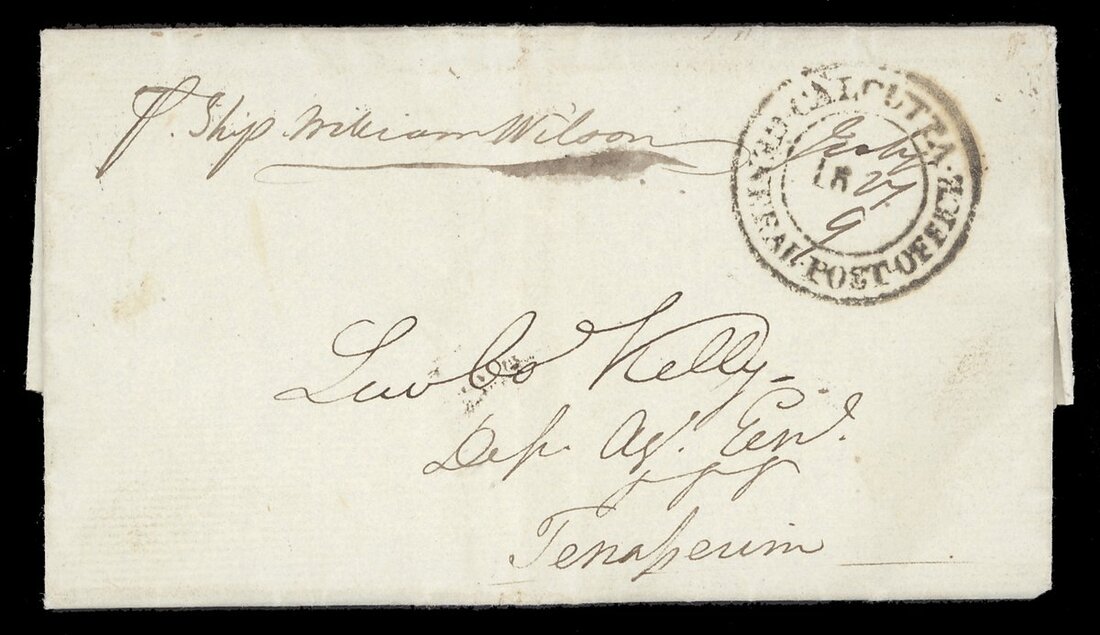 P. Ship William Wilson
CALCUTTA
GENERAL POST OFFICE
July
18 27
9
Kelly
Dep. Aj. Genl.
Tenasserim